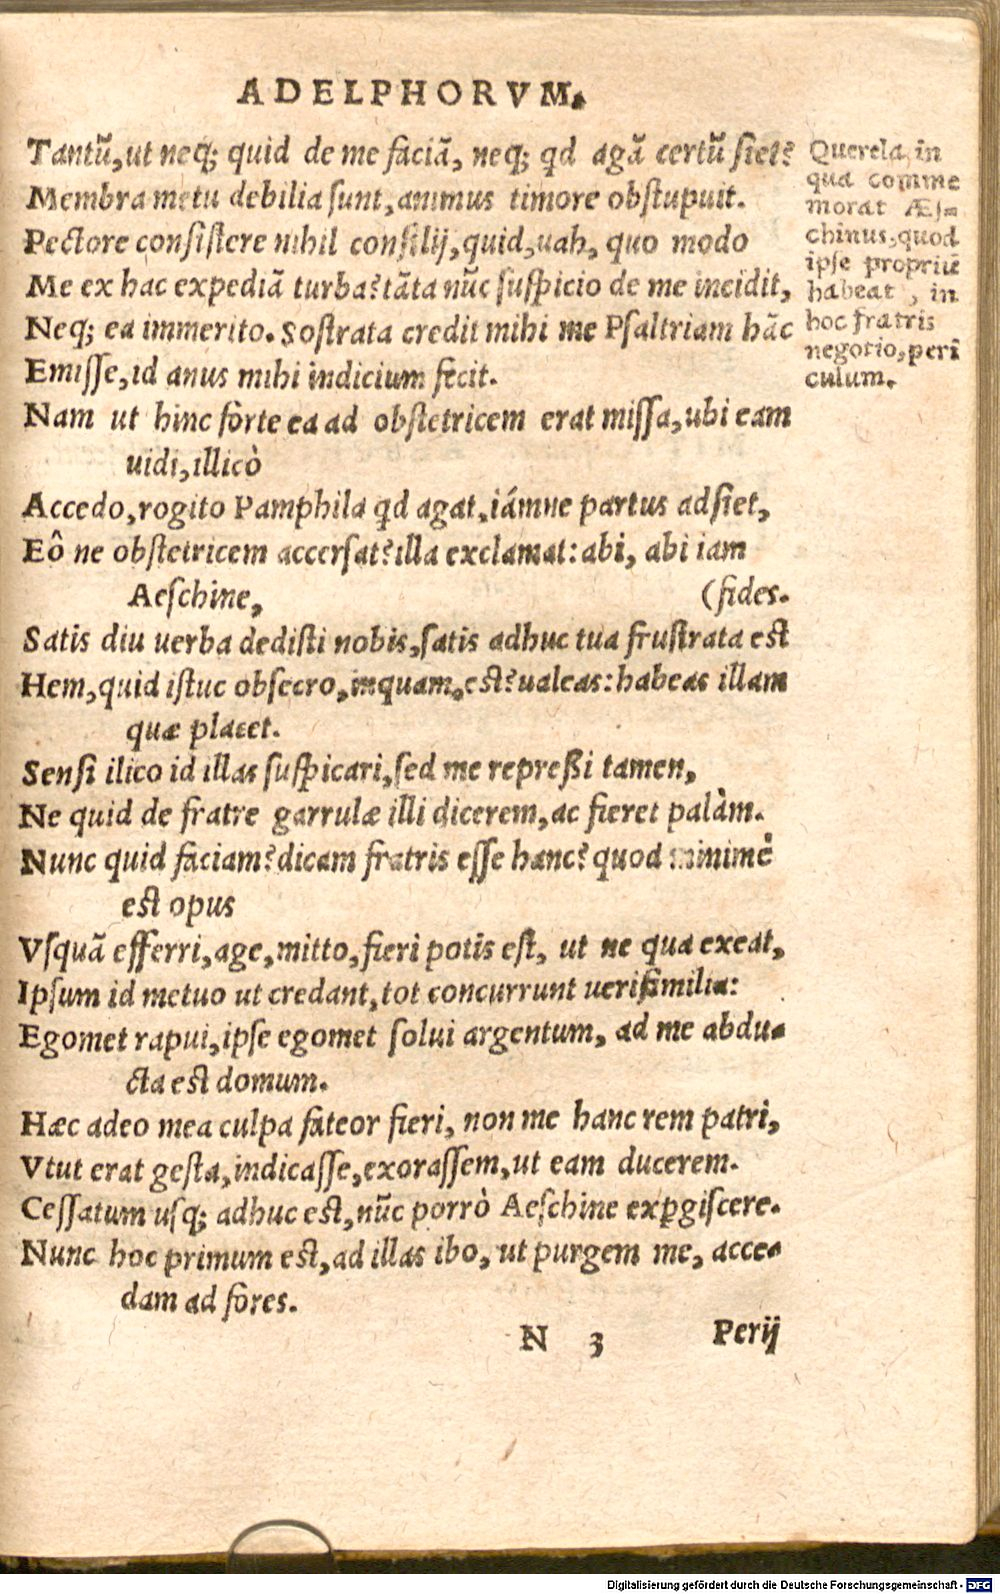 ADELPHORVM.
Tantũ, ut neq; quid de me faciã, neq; qd agã certũ siet?
Membra metu debilia sunt, animus timore obstupuit.
Pectore consistere nihil consilij, quid, uah, quo modo
Me ex hac expediã turba? tãta nũc suspicio de me incidit,
Neq; ea immerito. Sostrata credit mihi me Psaltriam hãc
Emisse, id anus mihi indicium fecit.
Nam ut hinc fòrte ea ad obstetricem erat missa, ubi eam
uidi, illicò
Accedo, rogito Pamphila qd agat, iámne partus adsiet,
Eô ne obstetricem accersat? illa exclamat: abi, abi iam
Aeschine, (fides.
Satis diu uerba dedisti nobis, satis adhuc tua frustrata est
Hem, quid istuc obsecro, inquam, est? ualeas: habeas illam
quæ placet.
Sensi ilico id illas suspicari, sed me repreßi tamen,
Ne quid de fratre garrulæ illi dicerem, ac fieret palàm.
Nunc quid faciam? dicam fratris esse hanc? quod minimè
est opus
Vsquã efferri, age, mitto, fieri potis est, ut ne qua exeat,
Ipsum id metuo ut credant, tot concurrunt uerisimilia:
Egomet rapui, ipse egomet solui argentum, ad me abdu-
cta est domum.
Hæc adeo mea culpa fateor fieri, non me hanc rem patri,
Vtut erat gesta, indicasse, exorassem, ut eam ducerem.
Cessatum usq; adhuc est, nũc porrò Aeschine expgiscere.
Nunc hoc primum est, ad illas ibo, ut purgem me, acce-
dam ad fores.
N 3 Perij
Querela, in
qua comme
morat Æs-
chinus, quod
ipse propriũ
habeat, in
hoc fratris
negotio, peri
culum.
Digitalisierung gefördert durch die Deutsche Forschungsgemeinschaft - DFG